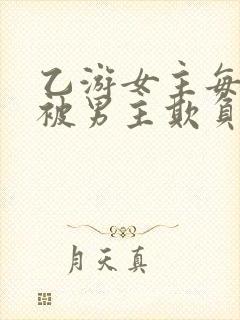 乙游女主每
被男主欺负
月天真